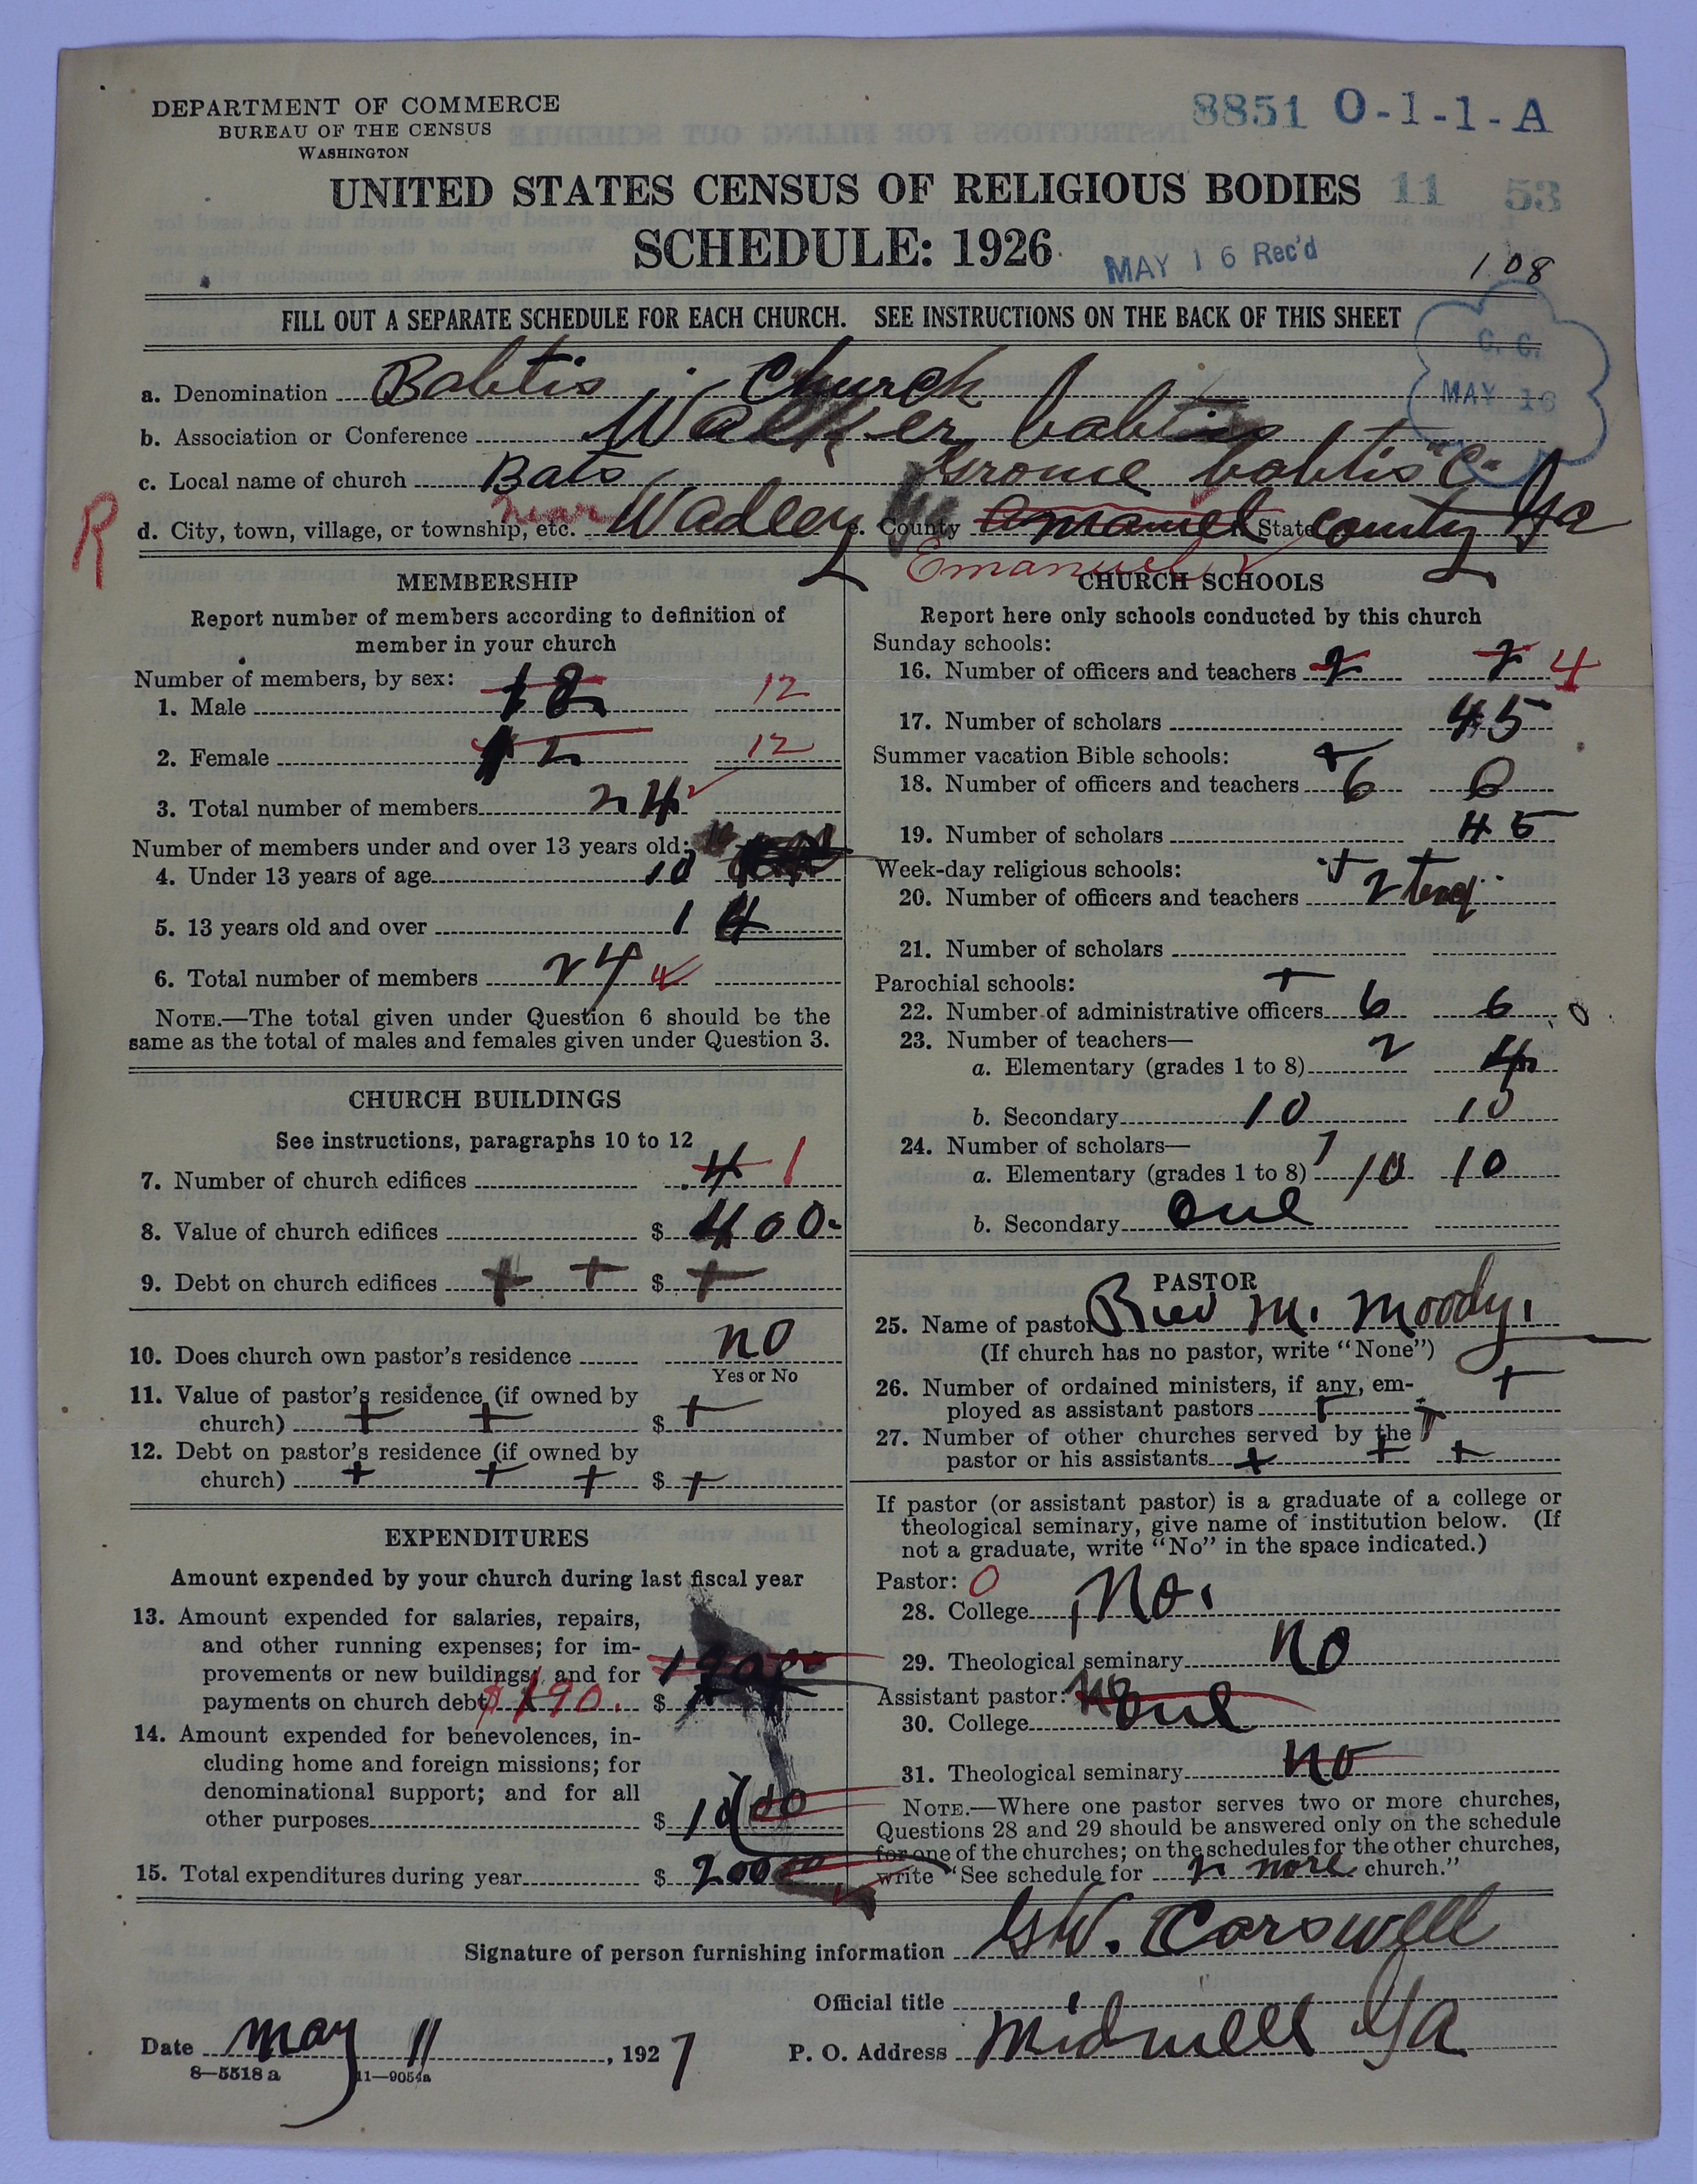 DEPARTMENT OF COMMERCE
BUREAU OF THE CENSUS
WASHINGTON
8851 O-1-1-A
UNITED STATES CENSUS OF RELIGIOUS BODIES 11 53
SCHEDULE: 1926
MAY 16 Rec'd
108
FILL OUT A SEPARATE SCHEDULE FOR EACH CHURCH. SEE INSTRUCTIONS ON THE BACK OF THIS SHEET
C. C.
MAY 16
a. Denomination Babtis Church
b. Association or Conference Walker babtis
c. Local name of church Bats Grome babtis "C"
R
d. City, town, village, or township, etc. near Wadley e. County State county Ga
Emanuel
MEMBERSHIP
Report number of members according to definition of
member in your church
Number of members, by sex:
1. Male 12 12
2. Female 12 12
3. Total number of members 24
Number of members under and over 13 years old:
4. Under 13 years of age 10
5. 13 years old and over 14
6. Total number of members 24
NOTE.—The total given under Question 6 should be the
same as the total of males and females given under Question 3.
CHURCH BUILDINGS
See instructions, paragraphs 10 to 12
7. Number of church edifices 4 1
8. Value of church edifices $ 400
9. Debt on church edifices + + $ +
10. Does church own pastor's residence no
Yes or No
11. Value of pastor's residence (if owned by
church) + + $ +
12. Debt on pastor's residence (if owned by
church) + + + $ +
EXPENDITURES
Amount expended by your church during last fiscal year
13. Amount expended for salaries, repairs,
and other running expenses; for im-
provements or new buildings; and for
payments on church debt $190. $
14. Amount expended for benevolences, in-
cluding home and foreign missions; for
denominational support; and for all
other purposes $ 10 00
15. Total expenditures during year $ 200 00
CHURCH SCHOOLS
Report here only schools conducted by this church
Sunday schools:
16. Number of officers and teachers 2 2 4
17. Number of scholars 45
Summer vacation Bible schools: +
18. Number of officers and teachers 6 6
19. Number of scholars 45
Week-day religious schools: +
20. Number of officers and teachers 2
21. Number of scholars
Parochial schools: +
22. Number of administrative officers 6 6
23. Number of teachers—
a. Elementary (grades 1 to 8) 2 4
b. Secondary 10 10
24. Number of scholars—
a. Elementary (grades 1 to 8) 10 10
b. Secondary one
PASTOR
25. Name of pastor Rev M. Moody.
(If church has no pastor, write "None")
26. Number of ordained ministers, if any, em-
ployed as assistant pastors +
27. Number of other churches served by the
pastor or his assistants + + +
If pastor (or assistant pastor) is a graduate of a college or
theological seminary, give name of institution below. (If
not a graduate, write "No" in the space indicated.)
Pastor: O
28. College No.
29. Theological seminary no
Assistant pastor:
30. College one
31. Theological seminary no
NOTE.—Where one pastor serves two or more churches,
Questions 28 and 29 should be answered only on the schedule
for one of the churches; on the schedules for the other churches,
write "See schedule for 2 more church."
Signature of person furnishing information G W. Carswell
Official title
Date may 11, 1927
P. O. Address Midwell Ga
8—5518 a 11—9054a